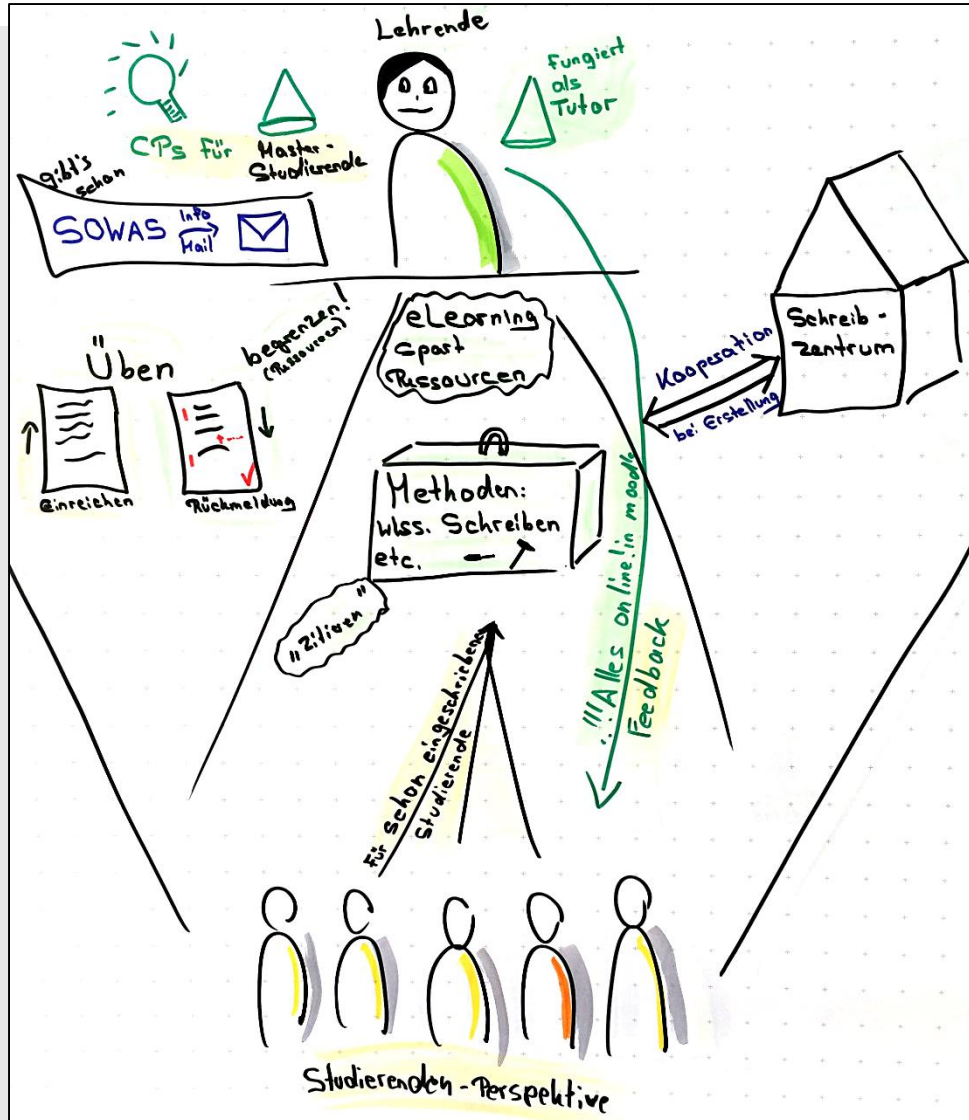 Lehrende
CPs für
Master-
Studierende
Fungiert
als
Tutor
gibt's
schon
SOWAS
Info
Mail
begrenzen!
(Ressourcen)
Üben
Einreichen
Rückmeldung
eLearning
spart
Ressourcen
Methoden:
wiss. Schreiben
etc.
"Zitieren"
Kooperation
bei Erstellung
Schreib-
zentrum
!!!Alles online!in moodle
Feedback
Für schon eingeschriebene
Studierende
Studierenden-Perspektive